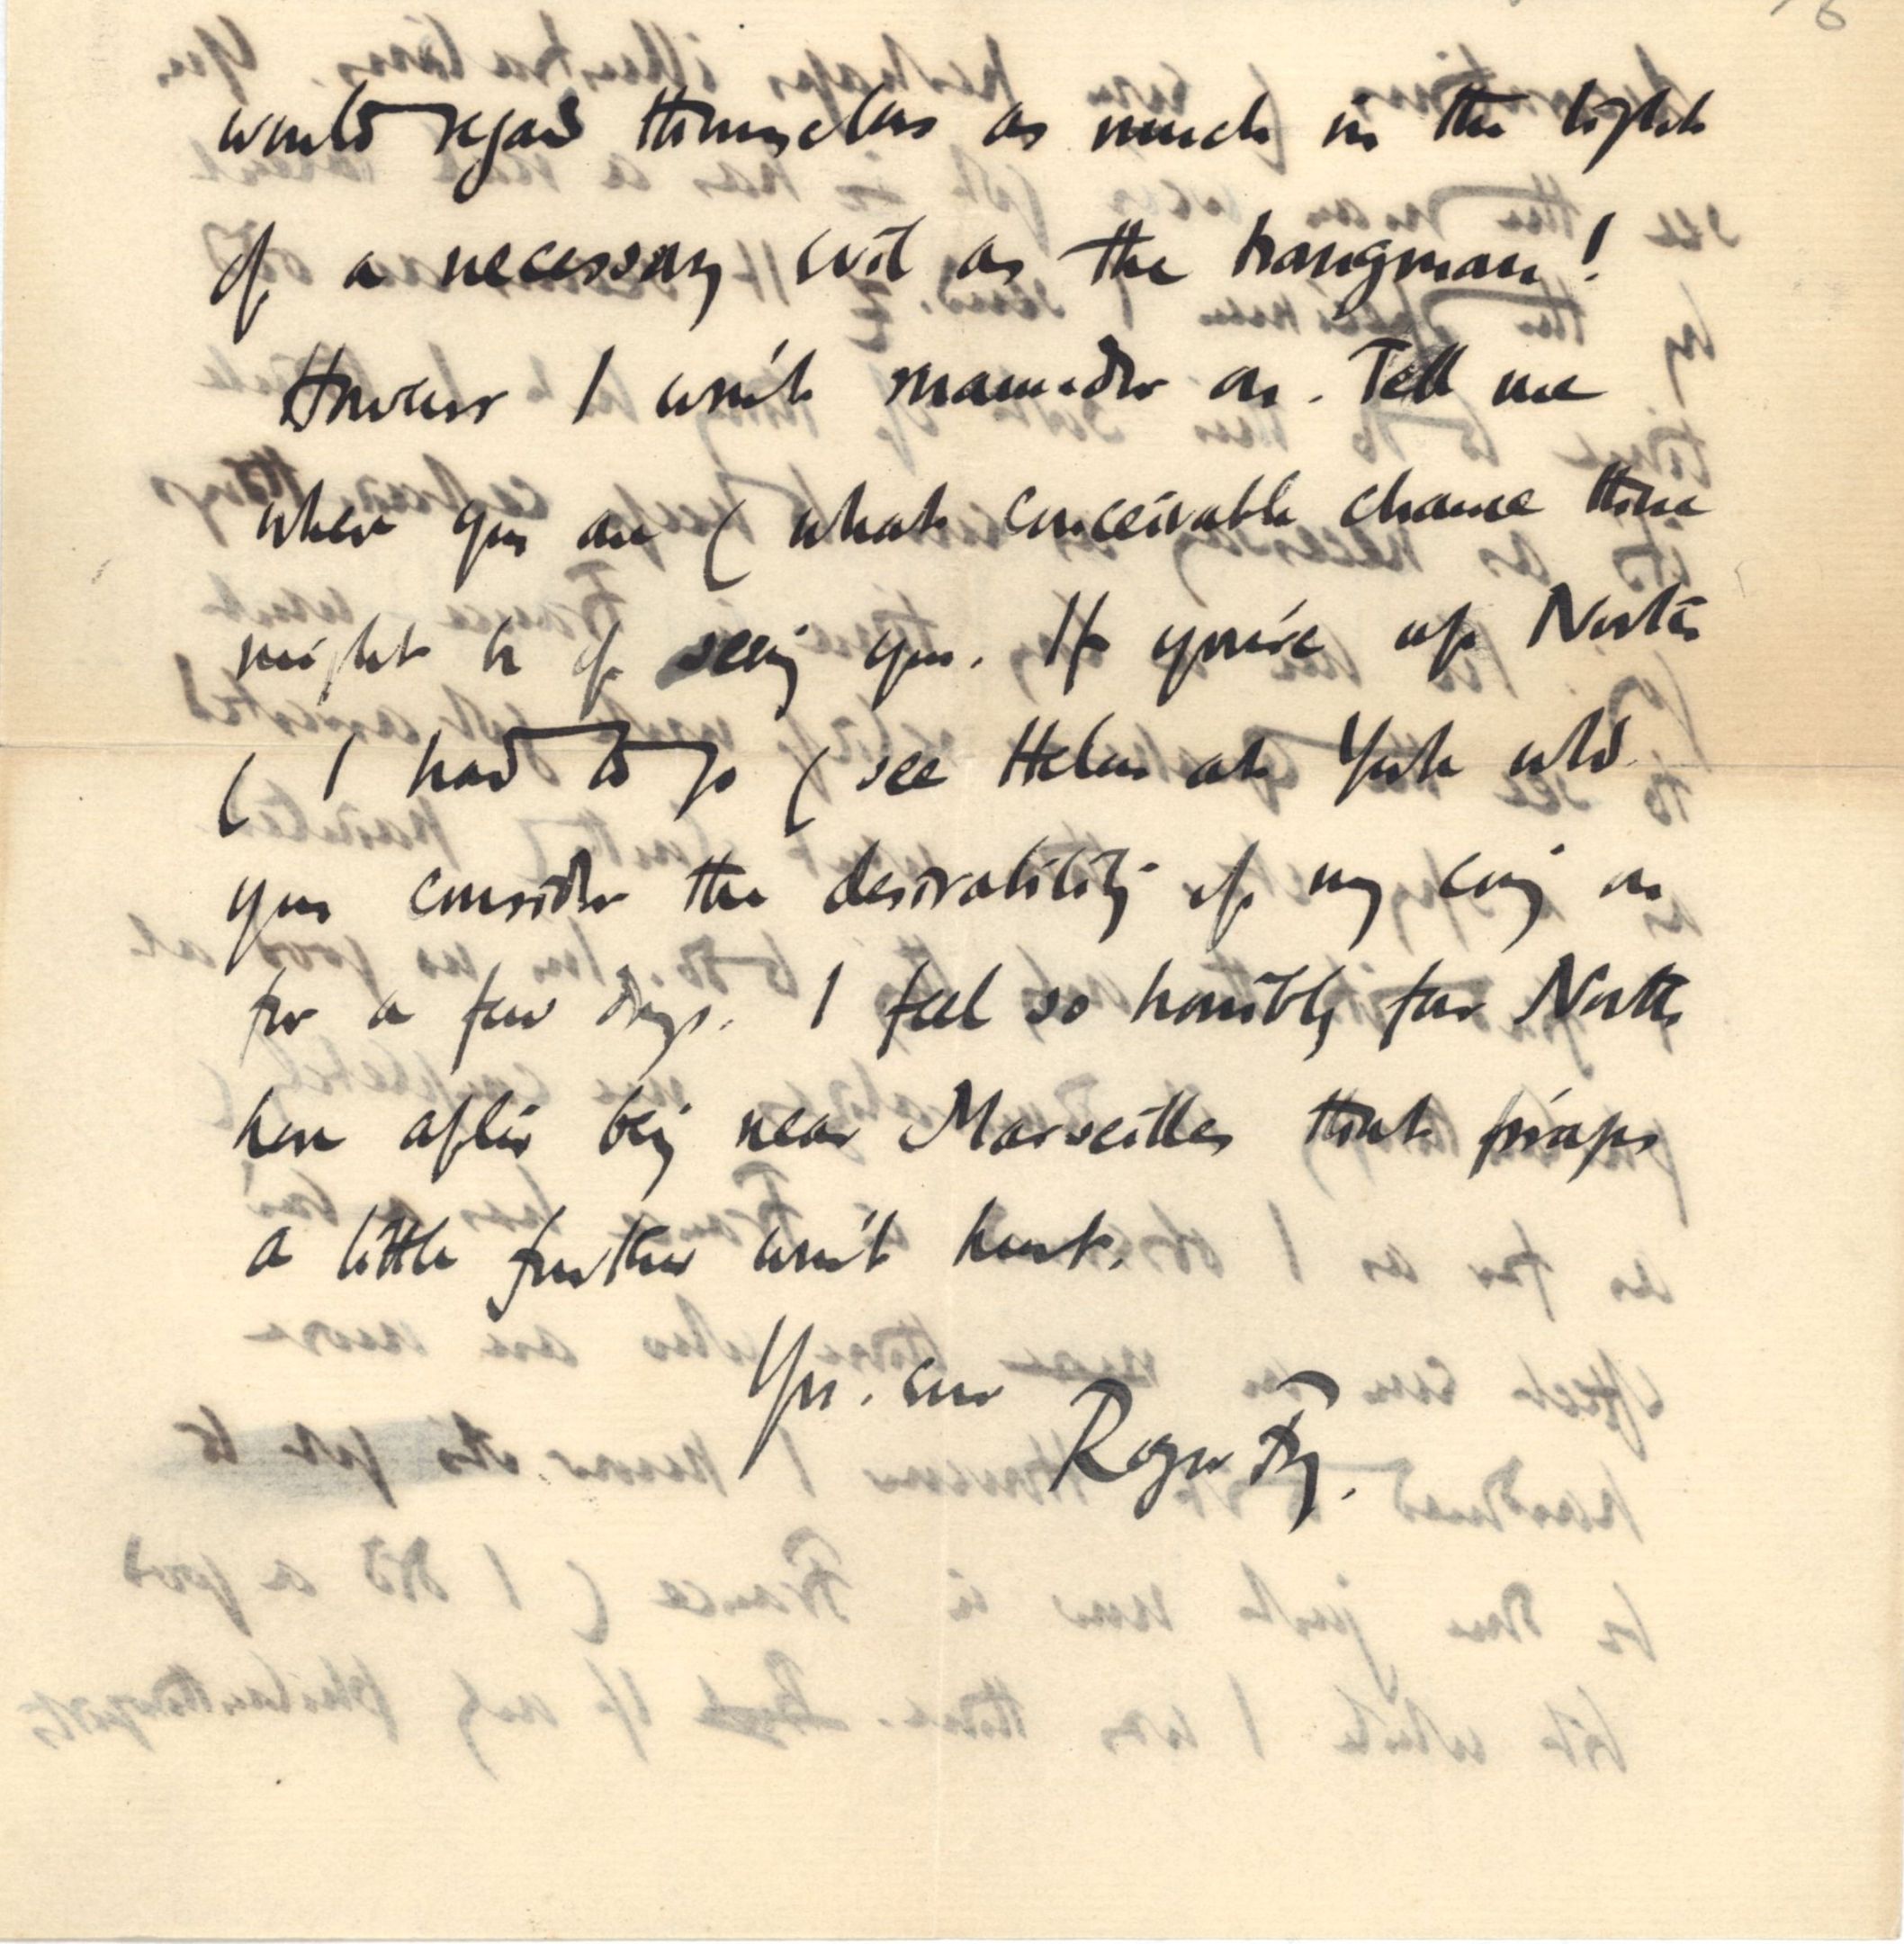 would regard themselves as much in the light
of a necessary evil as the hangman!
However I won't maunder on. Tell me
where you are ( what conceivable chance there
might be of seeing you. If you're up North
( I had to go ( see Helen at York wld
you consider the desirability of my cing on
for a few days. I feel so horribly far North
here after being near Marseilles that p'raps
a little further won't hurt.
Yrs. ever
Roger Fry.